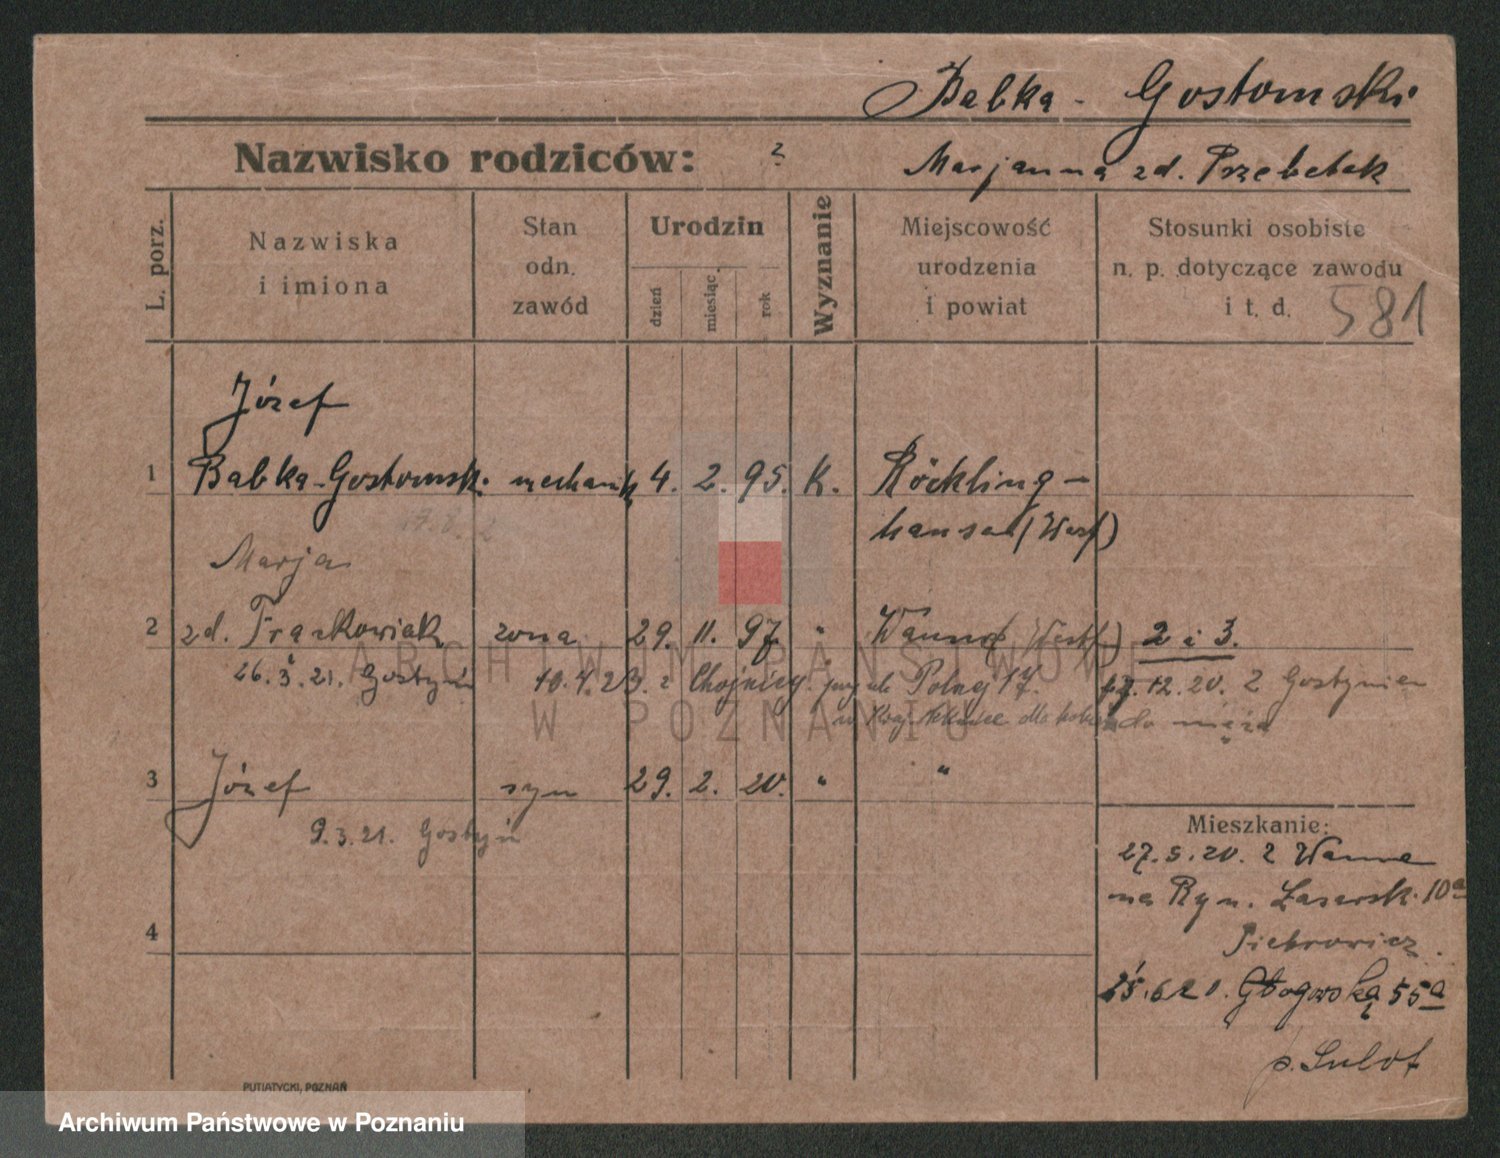 Babka - Gostomski
Nazwisko rodziców: ?
Marjanna zd. Przebetak
L. porz.
Nazwiska i imiona
Stan odn. zawód
Urodzin
dzień
miesiąc
rok
Wyznanie
Miejscowość urodzenia i powiat
Stosunki osobiste n. p. dotyczące zawodu i t. d.
581
Józef
1 Babka-Gostomski mechanik 4. 2. 95. K. Röckling-
hausen (Westf)
Marja
2 zd. Frąckowiak żona 29. 11. 97. " Wanne (Westf) 2 i 3.
26.3.21. Gostyń 10.4.23. z Chojnicy Polnej 17. 12.20. z Gostynien
do męża
3 Józef syn 29. 2. 20. " "
9.3.21. Gostyń
Mieszkanie:
27.5.20. z Wanne
na Ryn. Łazarsk. 10a
Pietrowicz.
4
25.6.20. Głogowska 55a
p. Sulot
PUTIATYCKI, POZNAŃ
ARCHIWUM PAŃSTWOWE
W POZNANIU
Archiwum Państwowe w Poznaniu